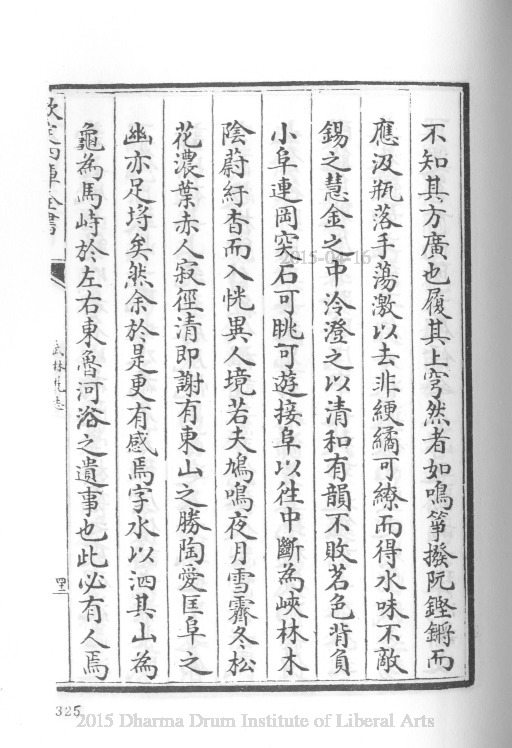 不知其方廣也履其上穹然者如鳴箏撥阮鏗鏘而
應汲瓶落手蕩激以去非綆繘可繚而得水味不敵
錫之慧金之中泠澄之以清和有韻不敗茗色背負
小阜連岡突石可眺可遊接阜以徃中斷為峽林木
陰蔚紆杳而入恍異人境若夫鳩鳴夜月雪霽冬松
花濃葉赤人寂徑清即謝有東山之勝陶愛匡阜之
幽亦足埒矣然余於是更有感焉字水以泗其山為
龜為馬峙於左右東魯河洛之遺事也此必有人焉
欽定四庫全書
武林梵志
325
2015-04-16
2015 Dharma Drum Institute of Liberal Arts